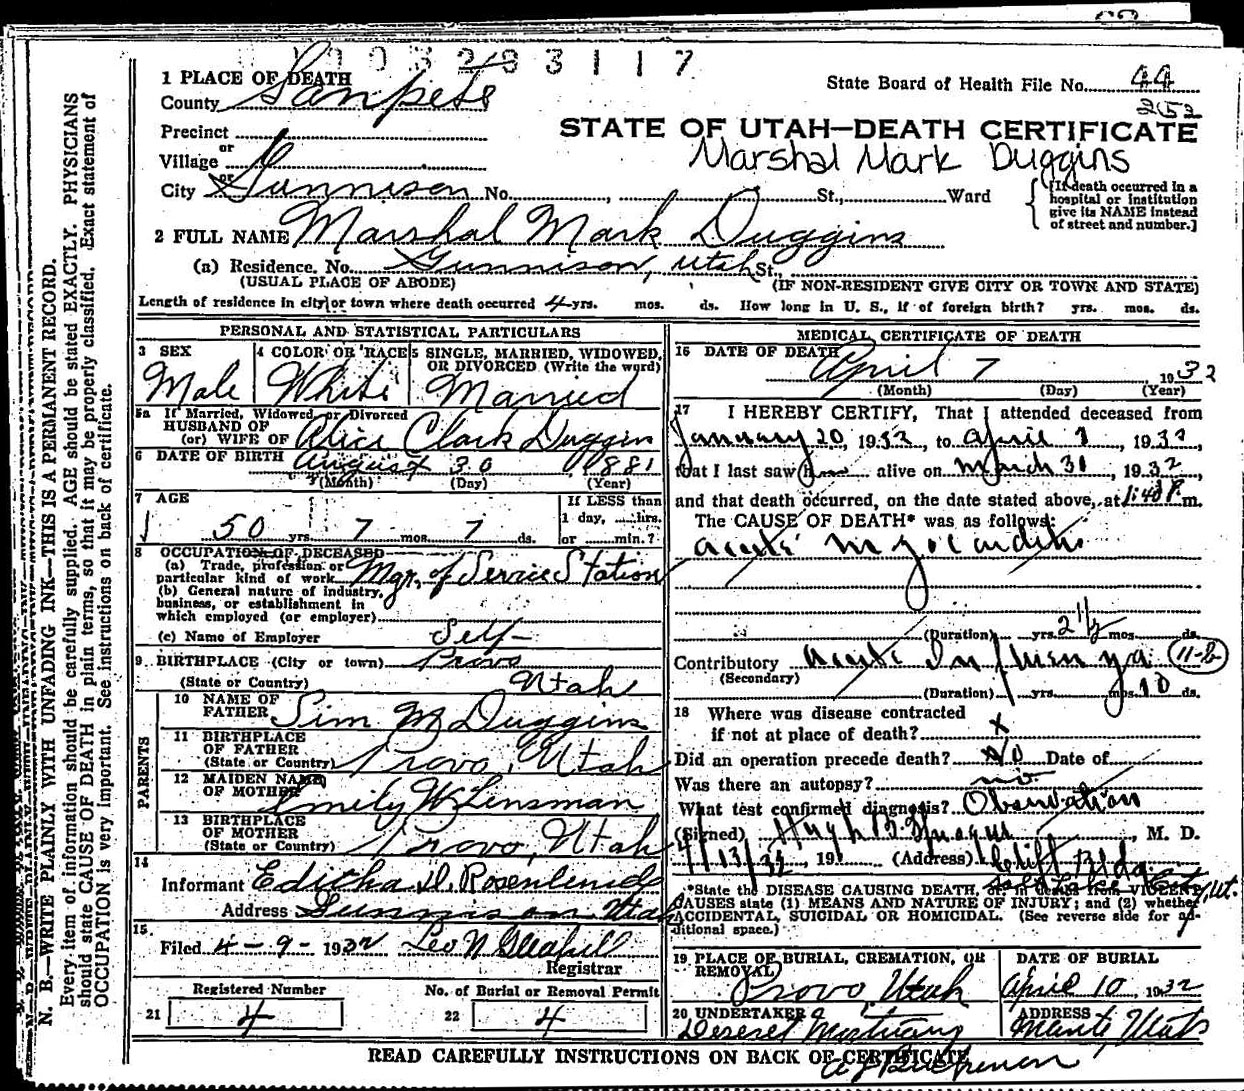 1 PLACE OF DEATH
State Board of Health File No. 44
County Sanpete
252
Precinct
STATE OF UTAH—DEATH CERTIFICATE
or
Village
Marshal Mark Duggins
or
City Gunnison No. , St., Ward
[If death occurred in a
hospital or institution
give its NAME instead
of street and number.]
2 FULL NAME Marshal Mark Duggins
(a) Residence. No. Gunnison, Utah St.,
(USUAL PLACE OF ABODE) (IF NON-RESIDENT GIVE CITY OR TOWN AND STATE)
Length of residence in city or town where death occurred 4 yrs. mos. ds. How long in U. S., if of foreign birth? yrs. mos. ds.
PERSONAL AND STATISTICAL PARTICULARS
3 SEX 4 COLOR OR RACE 5 SINGLE, MARRIED, WIDOWED,
OR DIVORCED (Write the word)
Male White Married
5a If Married, Widowed or Divorced
HUSBAND OF
(or) WIFE OF Alice Clark Duggins
6 DATE OF BIRTH August 30 1881
(Month) (Day) (Year)
7 AGE If LESS than
1 day, hrs.
50 yrs. 7 mos. 7 ds. or min.?
8 OCCUPATION OF DECEASED
(a) Trade, profession or
particular kind of work Mgr. of Service Station
(b) General nature of industry,
business, or establishment in
which employed (or employer)
(c) Name of Employer Self
9 BIRTHPLACE (City or town) Provo
(State or Country) Utah
PARENTS
10 NAME OF
FATHER Sim M Duggins
11 BIRTHPLACE
OF FATHER
(State or Country) Provo, Utah
12 MAIDEN NAME
OF MOTHER Emily W
13 BIRTHPLACE
OF MOTHER
(State or Country) Provo, Utah
14
Informant Editha D. Rosenlund
Address Gunnison Utah
15.
Filed 4-9-1932 Leo N
Registrar
Registered Number No. of Burial or Removal Permit
21 4 22 4
MEDICAL CERTIFICATE OF DEATH
16 DATE OF DEATH
April 7 1932
(Month) (Day) (Year)
17 I HEREBY CERTIFY, That I attended deceased from
January 20, 1932, to April 7, 1932,
that I last saw him alive on March 31, 1932
and that death occurred, on the date stated above, at 1:40 P. m.
The CAUSE OF DEATH* was as follows:
acute myocarditis
(Duration) yrs. 2 1/2 mos. ds.
Contributory acute Influenza 11-b
(Secondary)
(Duration) yrs. mos. 10 ds.
18 Where was disease contracted
if not at place of death? x
Did an operation precede death? No Date of
Was there an autopsy? no
What test confirmed diagnosis? Observation
(Signed) Hugh B. , M. D.
4/13/32, 191 (Address) Clift Bldg
Salt Lake City, Ut.
*State the DISEASE CAUSING DEATH, or, in deaths from VIOLENT
CAUSES state (1) MEANS AND NATURE OF INJURY; and (2) whether
ACCIDENTAL, SUICIDAL OR HOMICIDAL. (See reverse side for ad-
ditional space.)
19 PLACE OF BURIAL, CREMATION, OR
REMOVAL DATE OF BURIAL
Provo, Utah April 10, 1932
20 UNDERTAKER ADDRESS
Deseret Mortuary Manti, Utah
READ CAREFULLY INSTRUCTIONS ON BACK OF CERTIFICATE
N. B.—WRITE PLAINLY WITH UNFADING INK—THIS IS A PERMANENT RECORD.
Every item of information should be carefully supplied. AGE should be stated EXACTLY. PHYSICIANS
should state CAUSE OF DEATH in plain terms, so that it may be properly classified. Exact statement of
OCCUPATION is very important. See instructions on back of certificate.